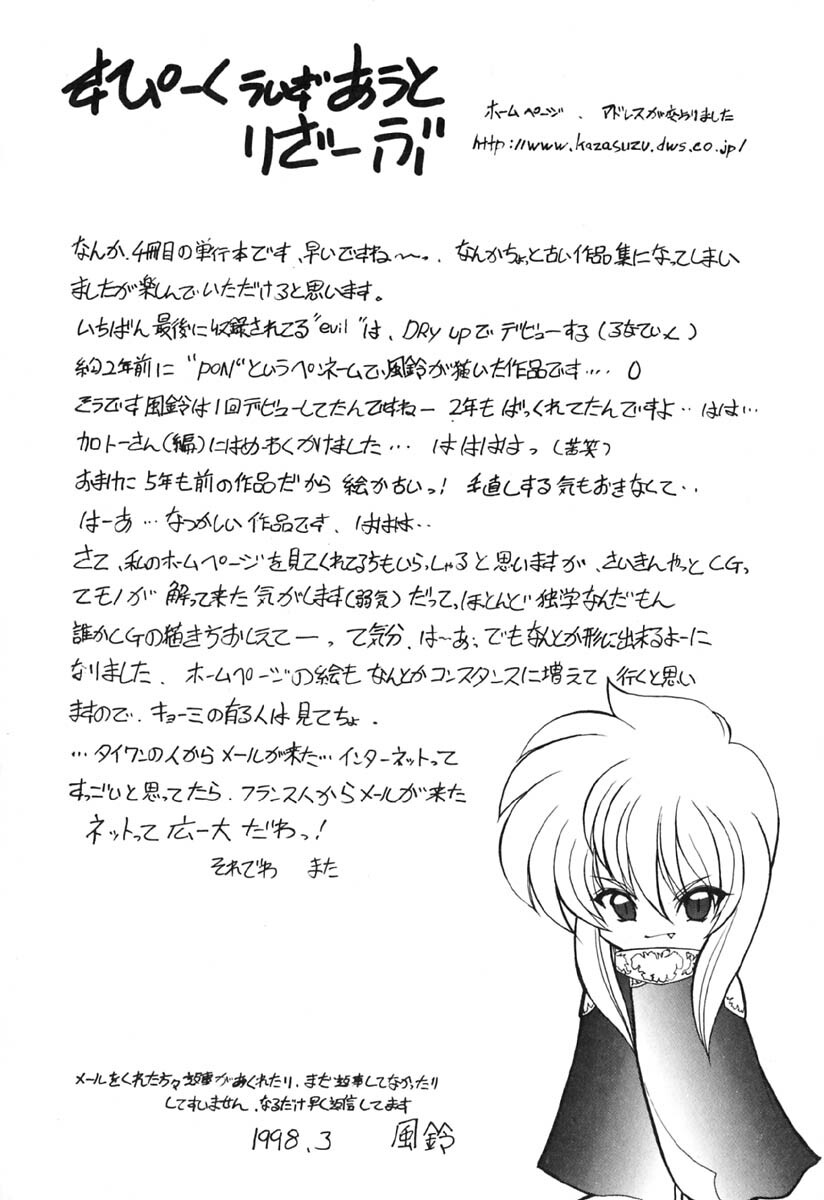 すぴーく うぃず あうと
りざーぶ
ホームページ、アドレスが変わりました
http://www.kazasuzu.dws.co.jp/
なんか、4冊目の単行本です、早いですね〜っ、なんかちょっと古い作品集になってしまい
ましたが楽しんでいただけると思います。
いちばん最後に収録されてる"evil"は、DRy upでデビューする(るなてぃく)
約2年前に"PON"というペンネームで、風鈴が描いた作品です….0
そうです風鈴は1回デビューしてたんですねー 2年もばっくれてたんですよ‥はは…
加トーさん(編)にはめーわくかけました… ははははっ(苦笑)
おまけに5年も前の作品だから絵が古いっ! 手直しする気もおきなくて‥
はーあ…なつかしい作品です、ははは‥
さて、私のホームページを見てくれてる方もいらっしゃると思いますが、さいきんやっとCGっ
てモノが解って来た気がします(弱気)だって、ほとんど独学なんだもん
誰かCGの描き方おしえてーっ、て気分、は〜あ、でもなんとか形に出来るよーに
なりました、ホームページの絵もなんとかコンスタンスに増えて行くと思い
ますので、キョーミの有る人は見てちょ。
…タイワンの人からメールが来た…インターネットって
すっごいと思ってたら、フランス人からメールが来た
ネットって広ー大だわっ!
それでわ また
メールをくれた方々返事がおくれたり、まだ返事してなかったり
してすいません、なるだけ早く返信してます
1998.3 風鈴